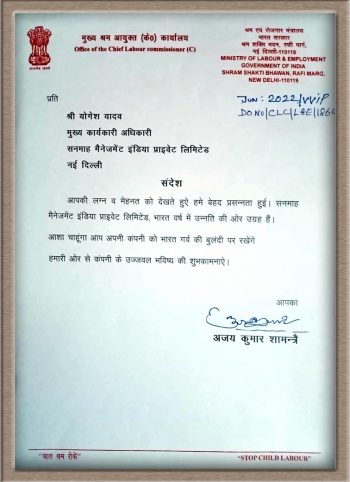 मुख्य श्रम आयुक्त (के०) कार्यालय
Office of the Chief Labour commissioner (C)
श्रम एवं रोजगार मंत्रालय
भारत सरकार
श्रम शक्ति भवन, रफी मार्ग,
नई दिल्ली-110119
MINISTRY OF LABOUR & EMPLOYMENT
GOVERNMENT OF INDIA
SHRAM SHAKTI BHAWAN, RAFI MARG,
NEW DELHI-110119
JUN: 2022/VVIP
DO NO/CLC/L&E/186
प्रति
श्री योगेश यादव
मुख्य कार्यकारी अधिकारी
सनमाह मैनेजमेंट इंडिया प्राइवेट लिमिटेड
नई दिल्ली
संदेश
आपकी लग्न व मेहनत को देखते हुऐ हमे बेहद प्रसन्नता हुई। सनमाह
मैनेजमेंट इंडिया प्राइवेट लिमिटेड, भारत वर्ष में उन्नति की ओर उग्रह हैं।
आशा चाहूंगा आप अपनी कंपनी को भारत गर्व की बुलंदी पर रखेंगे
हमारी ओर से कंपनी के उज्जवल भविष्य की शुभकामनाऐं।
आपका
अजय कुमार शामन्त्रै
"बाल श्रम रोकें"
"STOP CHILD LABOUR"